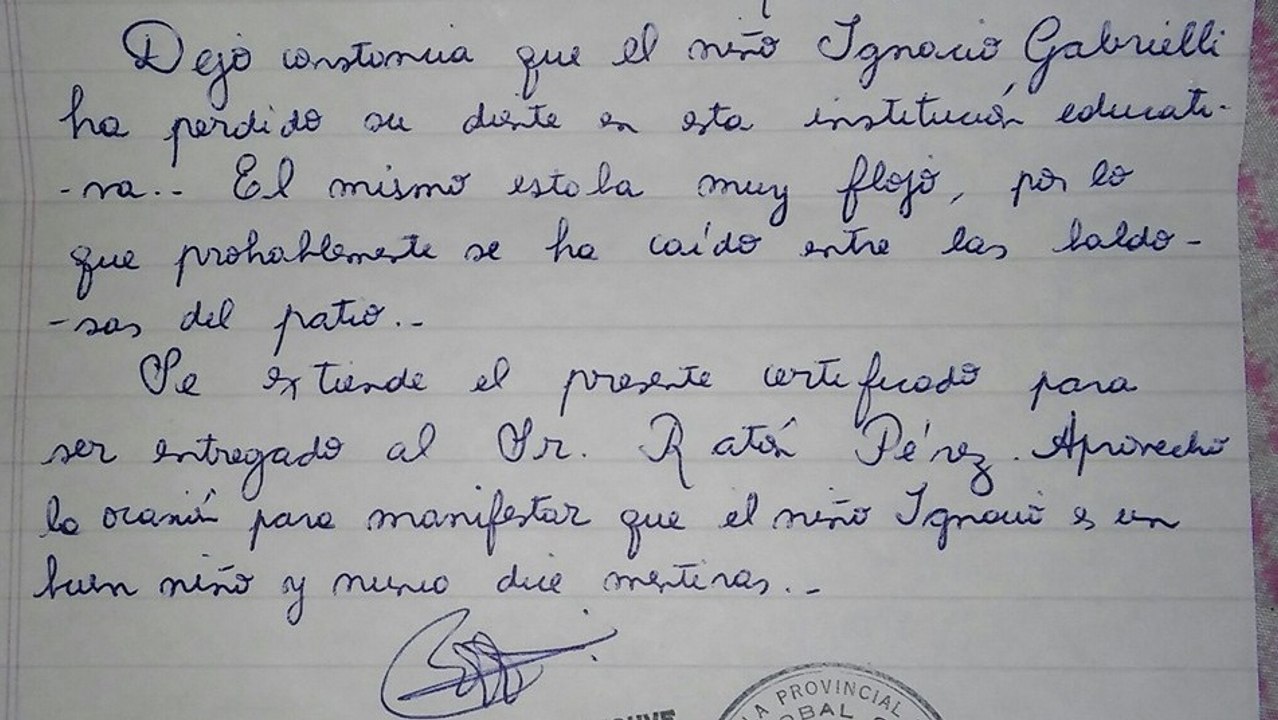 Dejo constancia que el niño Ignacio Gabrielli
ha perdido su diente en esta institución educati-
-va.- El mismo estaba muy flojo, por lo
que probablemente se ha caído entre las baldo-
-sas del patio.-
Se extiende el presente certificado para
ser entregado al Sr. Ratón Pérez. Aprovecho
la ocasión para manifestar que el niño Ignacio es un
buen niño y nunca dice mentiras.-
PROVINCIAL